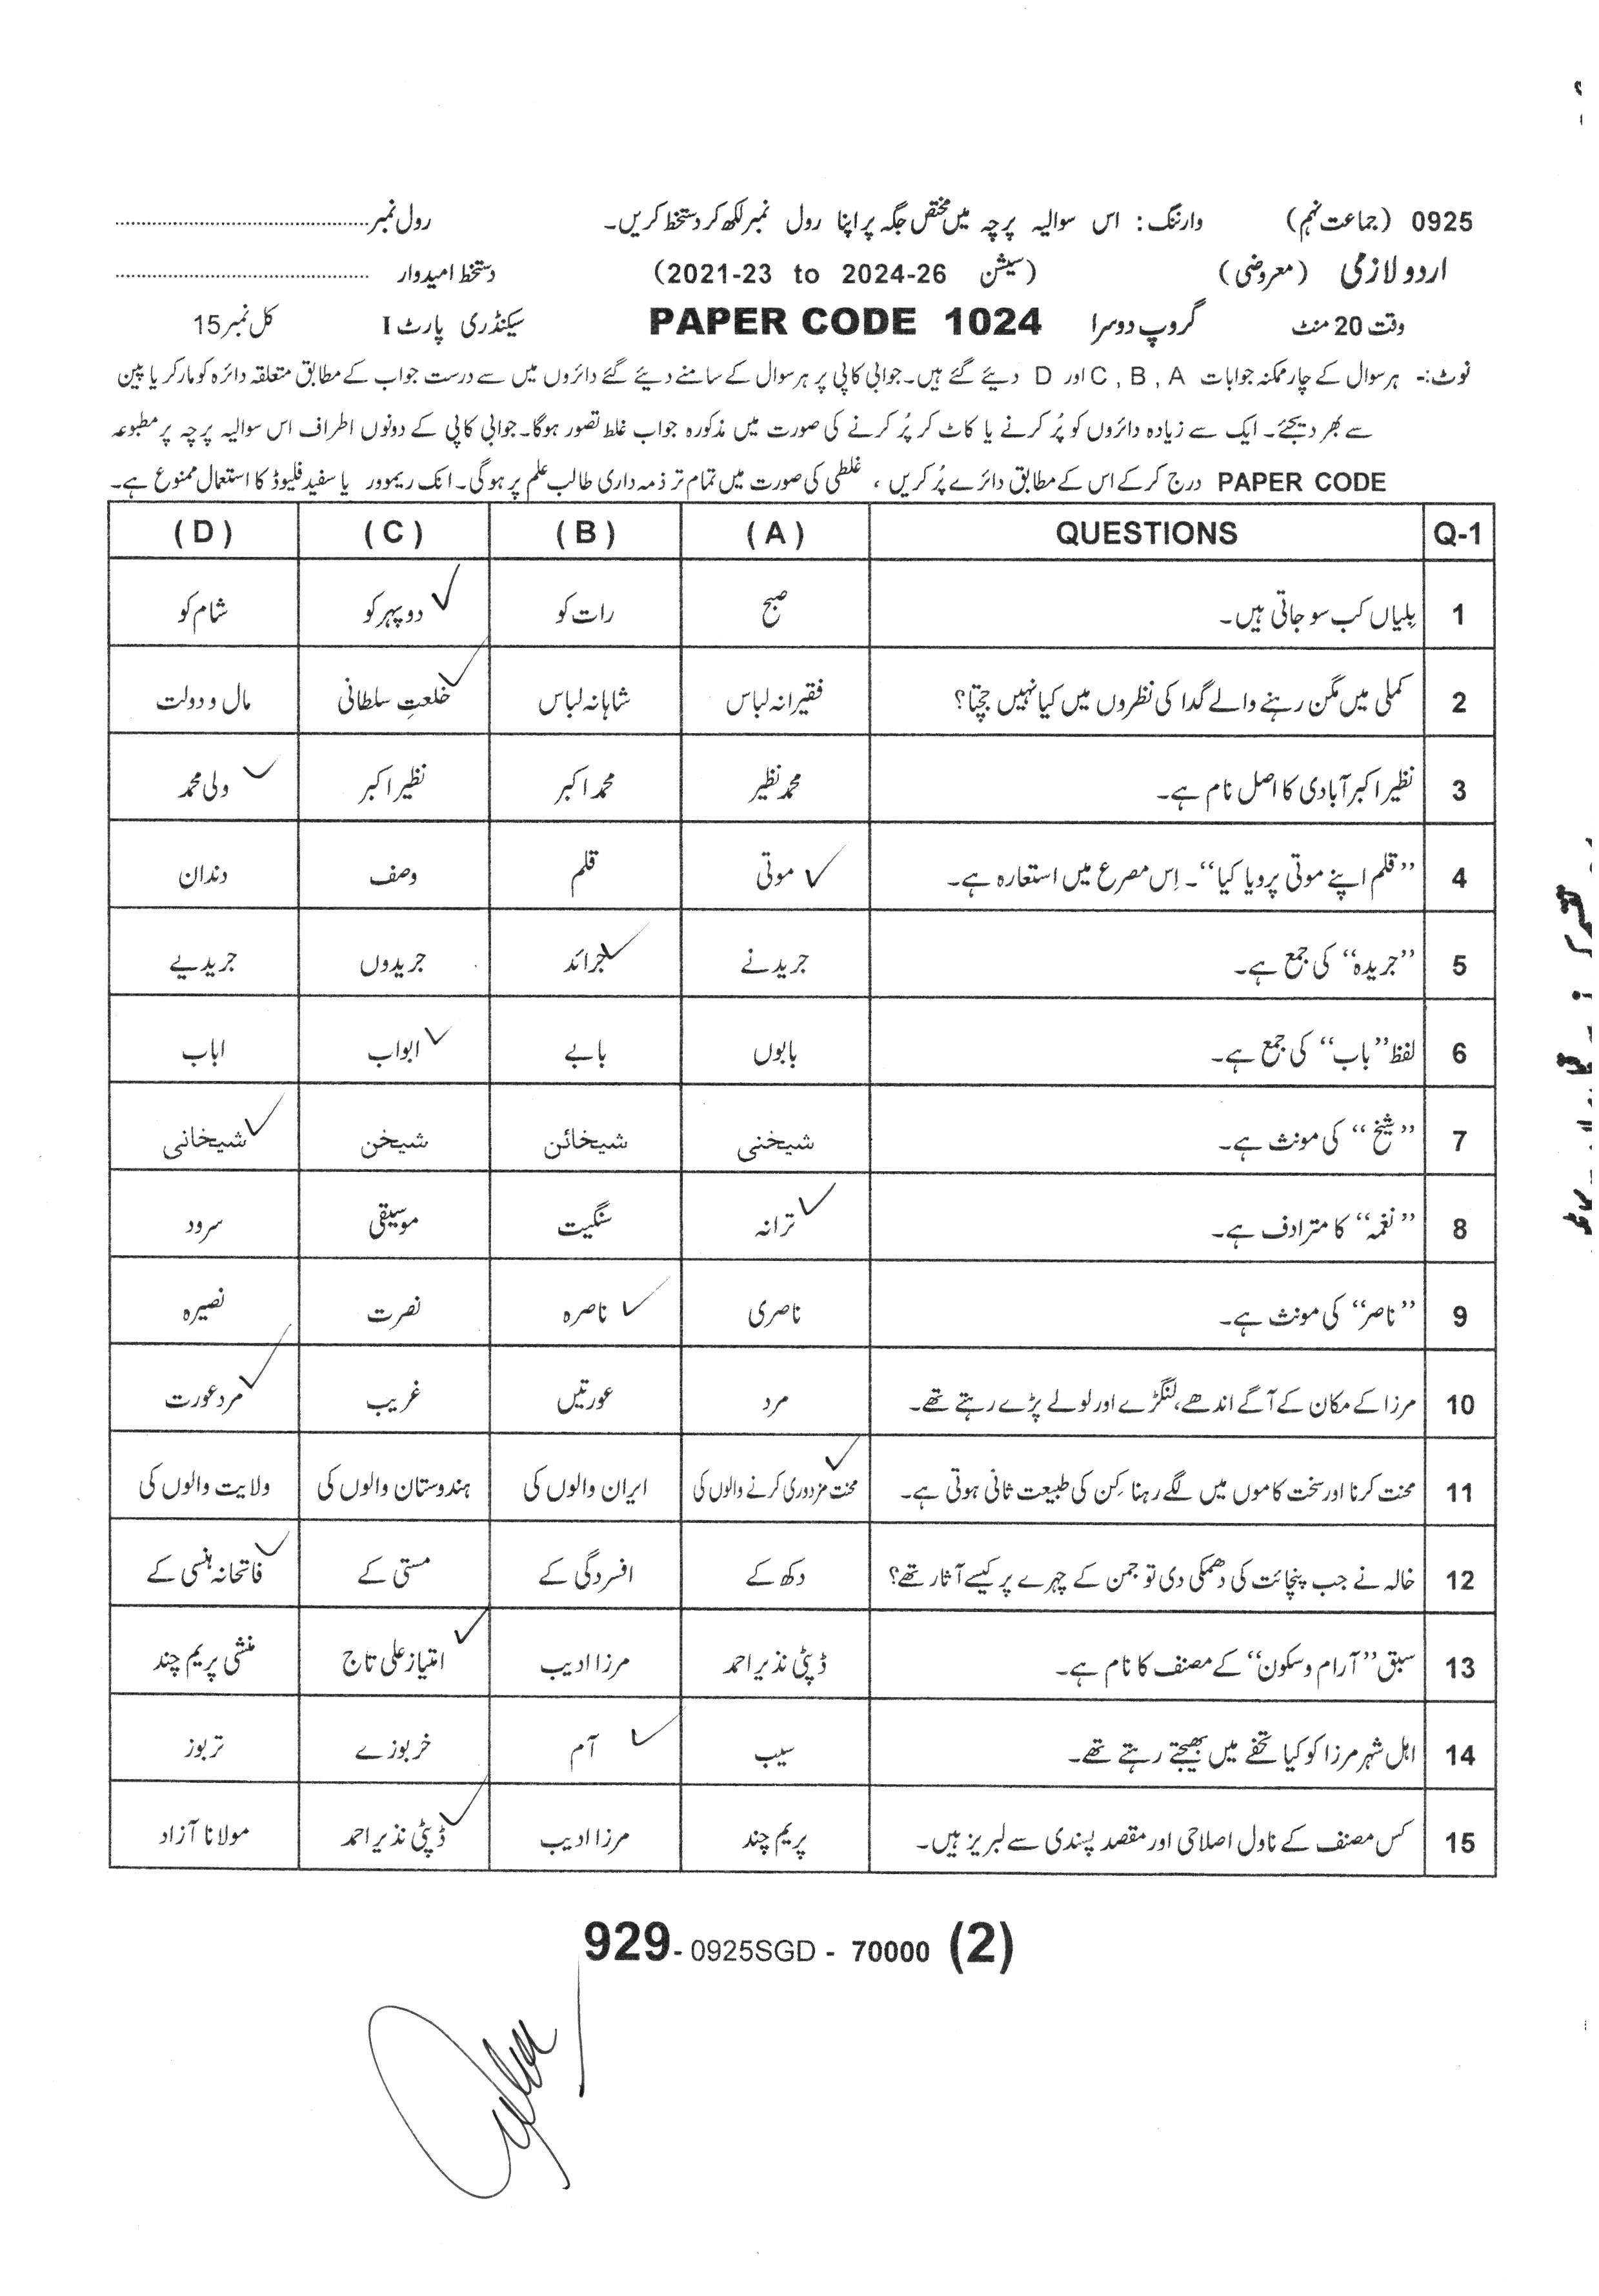 0925 (جماعت نہم) وارننگ: اس سوالیہ پرچہ میں مختص جگہ پر اپنا رول نمبر لکھ کر دستخط کریں۔ رول نمبر
اردو لازمی (معروضی) (سیشن 2021-23 to 2024-26) دستخط امیدوار
وقت 20 منٹ گروپ دوسرا PAPER CODE 1024 سیکنڈری پارٹ I کل نمبر 15
نوٹ:- ہر سوال کے چار ممکنہ جوابات A , B , C اور D دیئے گئے ہیں۔ جوابی کاپی پر ہر سوال کے سامنے دیئے گئے دائروں میں سے درست جواب کے مطابق متعلقہ دائرہ کو مارکر یا پین
سے بھر دیجئے۔ ایک سے زیادہ دائروں کو پُر کرنے یا کاٹ کر پُر کرنے کی صورت میں مذکورہ جواب غلط تصور ہوگا۔ جوابی کاپی کے دونوں اطراف اس سوالیہ پرچہ پر مطبوعہ
PAPER CODE درج کر کے اس کے مطابق دائرے پُر کریں ، غلطی کی صورت میں تمام تر ذمہ داری طالب علم پر ہوگی۔ انک ریموور یا سفید فلیوڈ کا استعمال ممنوع ہے۔
Q-1 QUESTIONS (A) (B) (C) (D)
1 بِلیاں کب سو جاتی ہیں۔ صبح رات کو دوپہر کو شام کو
2 کملی میں مگن رہنے والے گدا کی نظروں میں کیا نہیں جچتا؟ فقیرانہ لباس شاہانہ لباس خلعتِ سلطانی مال و دولت
3 نظیر اکبر آبادی کا اصل نام ہے۔ محمد نظیر محمد اکبر نظیر اکبر ولی محمد
4 ”قلم اپنے موتی پرویا کیا“۔ اِس مصرع میں استعارہ ہے۔ موتی قلم وصف دندان
5 ”جریدہ“ کی جمع ہے۔ جریدنے جرائد جریدوں جریدیے
6 لفظ ”باب“ کی جمع ہے۔ بابوں بابے ابواب اباب
7 ”شیخ“ کی مونث ہے۔ شیخنی شیخائن شیخن شیخانی
8 ”نغمہ“ کا مترادف ہے۔ ترانہ سنگیت موسیقی سرود
9 ”ناصر“ کی مونث ہے۔ ناصری ناصرہ نصرت نصیرہ
10 مرزا کے مکان کے آگے اندھے، لنگڑے اور لولے پڑے رہتے تھے۔ مرد عورتیں غریب مرد عورت
11 محنت کرنا اور سخت کاموں میں لگے رہنا کِن کی طبیعت ثانی ہوتی ہے۔ محنت مزدوری کرنے والوں کی ایران والوں کی ہندوستان والوں کی ولایت والوں کی
12 خالہ نے جب پنچائت کی دھمکی دی تو جمن کے چہرے پر کیسے آثار تھے؟ دکھ کے افسردگی کے مستی کے فاتحانہ ہنسی کے
13 سبق ”آرام و سکون“ کے مصنف کا نام ہے۔ ڈپٹی نذیر احمد مرزا ادیب امتیاز علی تاج منشی پریم چند
14 اہل شہر مرزا کو کیا تحفے میں بھیجتے رہتے تھے۔ سیب آم خربوزے تربوز
15 کس مصنف کے ناول اصلاحی اور مقصد پسندی سے لبریز ہیں۔ پریم چند مرزا ادیب ڈپٹی نذیر احمد مولانا آزاد
929- 0925SGD - 70000 (2)